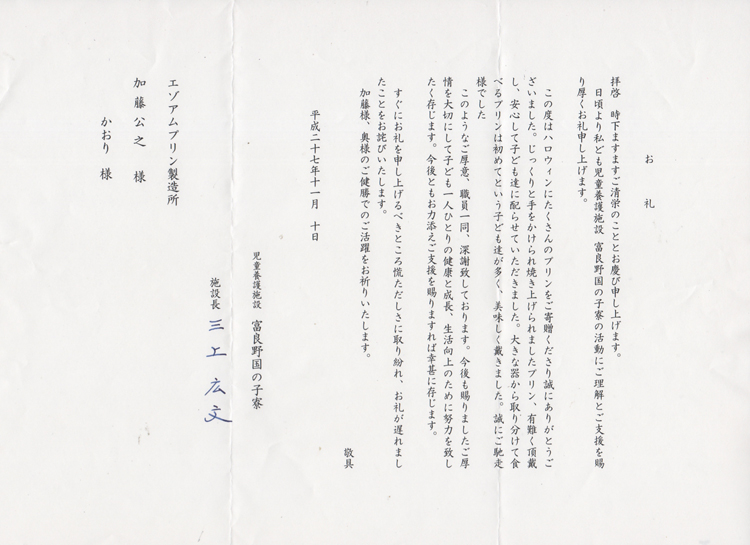 お礼
拝啓　時下ますますご清栄のこととお慶び申し上げます。
日頃より私ども児童養護施設 富良野国の子寮の活動にご理解とご支援を賜
り厚くお礼申し上げます。
この度はハロウィンにたくさんのプリンをご寄贈くださり誠にありがとうご
ざいました。じっくりと手をかけられ焼き上げられましたプリン、有難く頂戴
し、安心して子ども達に配らせていただきました。大きな器から取り分けて食
べるプリンは初めてという子ども達が多く、美味しく戴きました。誠にご馳走
様でした
このようなご厚意、職員一同、深謝致しております。今後も賜りましたご厚
情を大切にして子ども一人ひとりの健康と成長、生活向上のために努力を致し
たく存じます。今後ともお力添えご支援を賜りますれば幸甚に存じます。
すぐにお礼を申し上げるべきところ慌ただしさに取り紛れ、お礼が遅れまし
たことをお詫びいたします。
加藤様、奥様のご健勝でのご活躍をお祈りいたします。
敬具
平成二十七年十一月　十日
児童養護施設　富良野国の子寮
施設長　三上広文
エゾアムプリン製造所
加藤公之　様
かおり　様